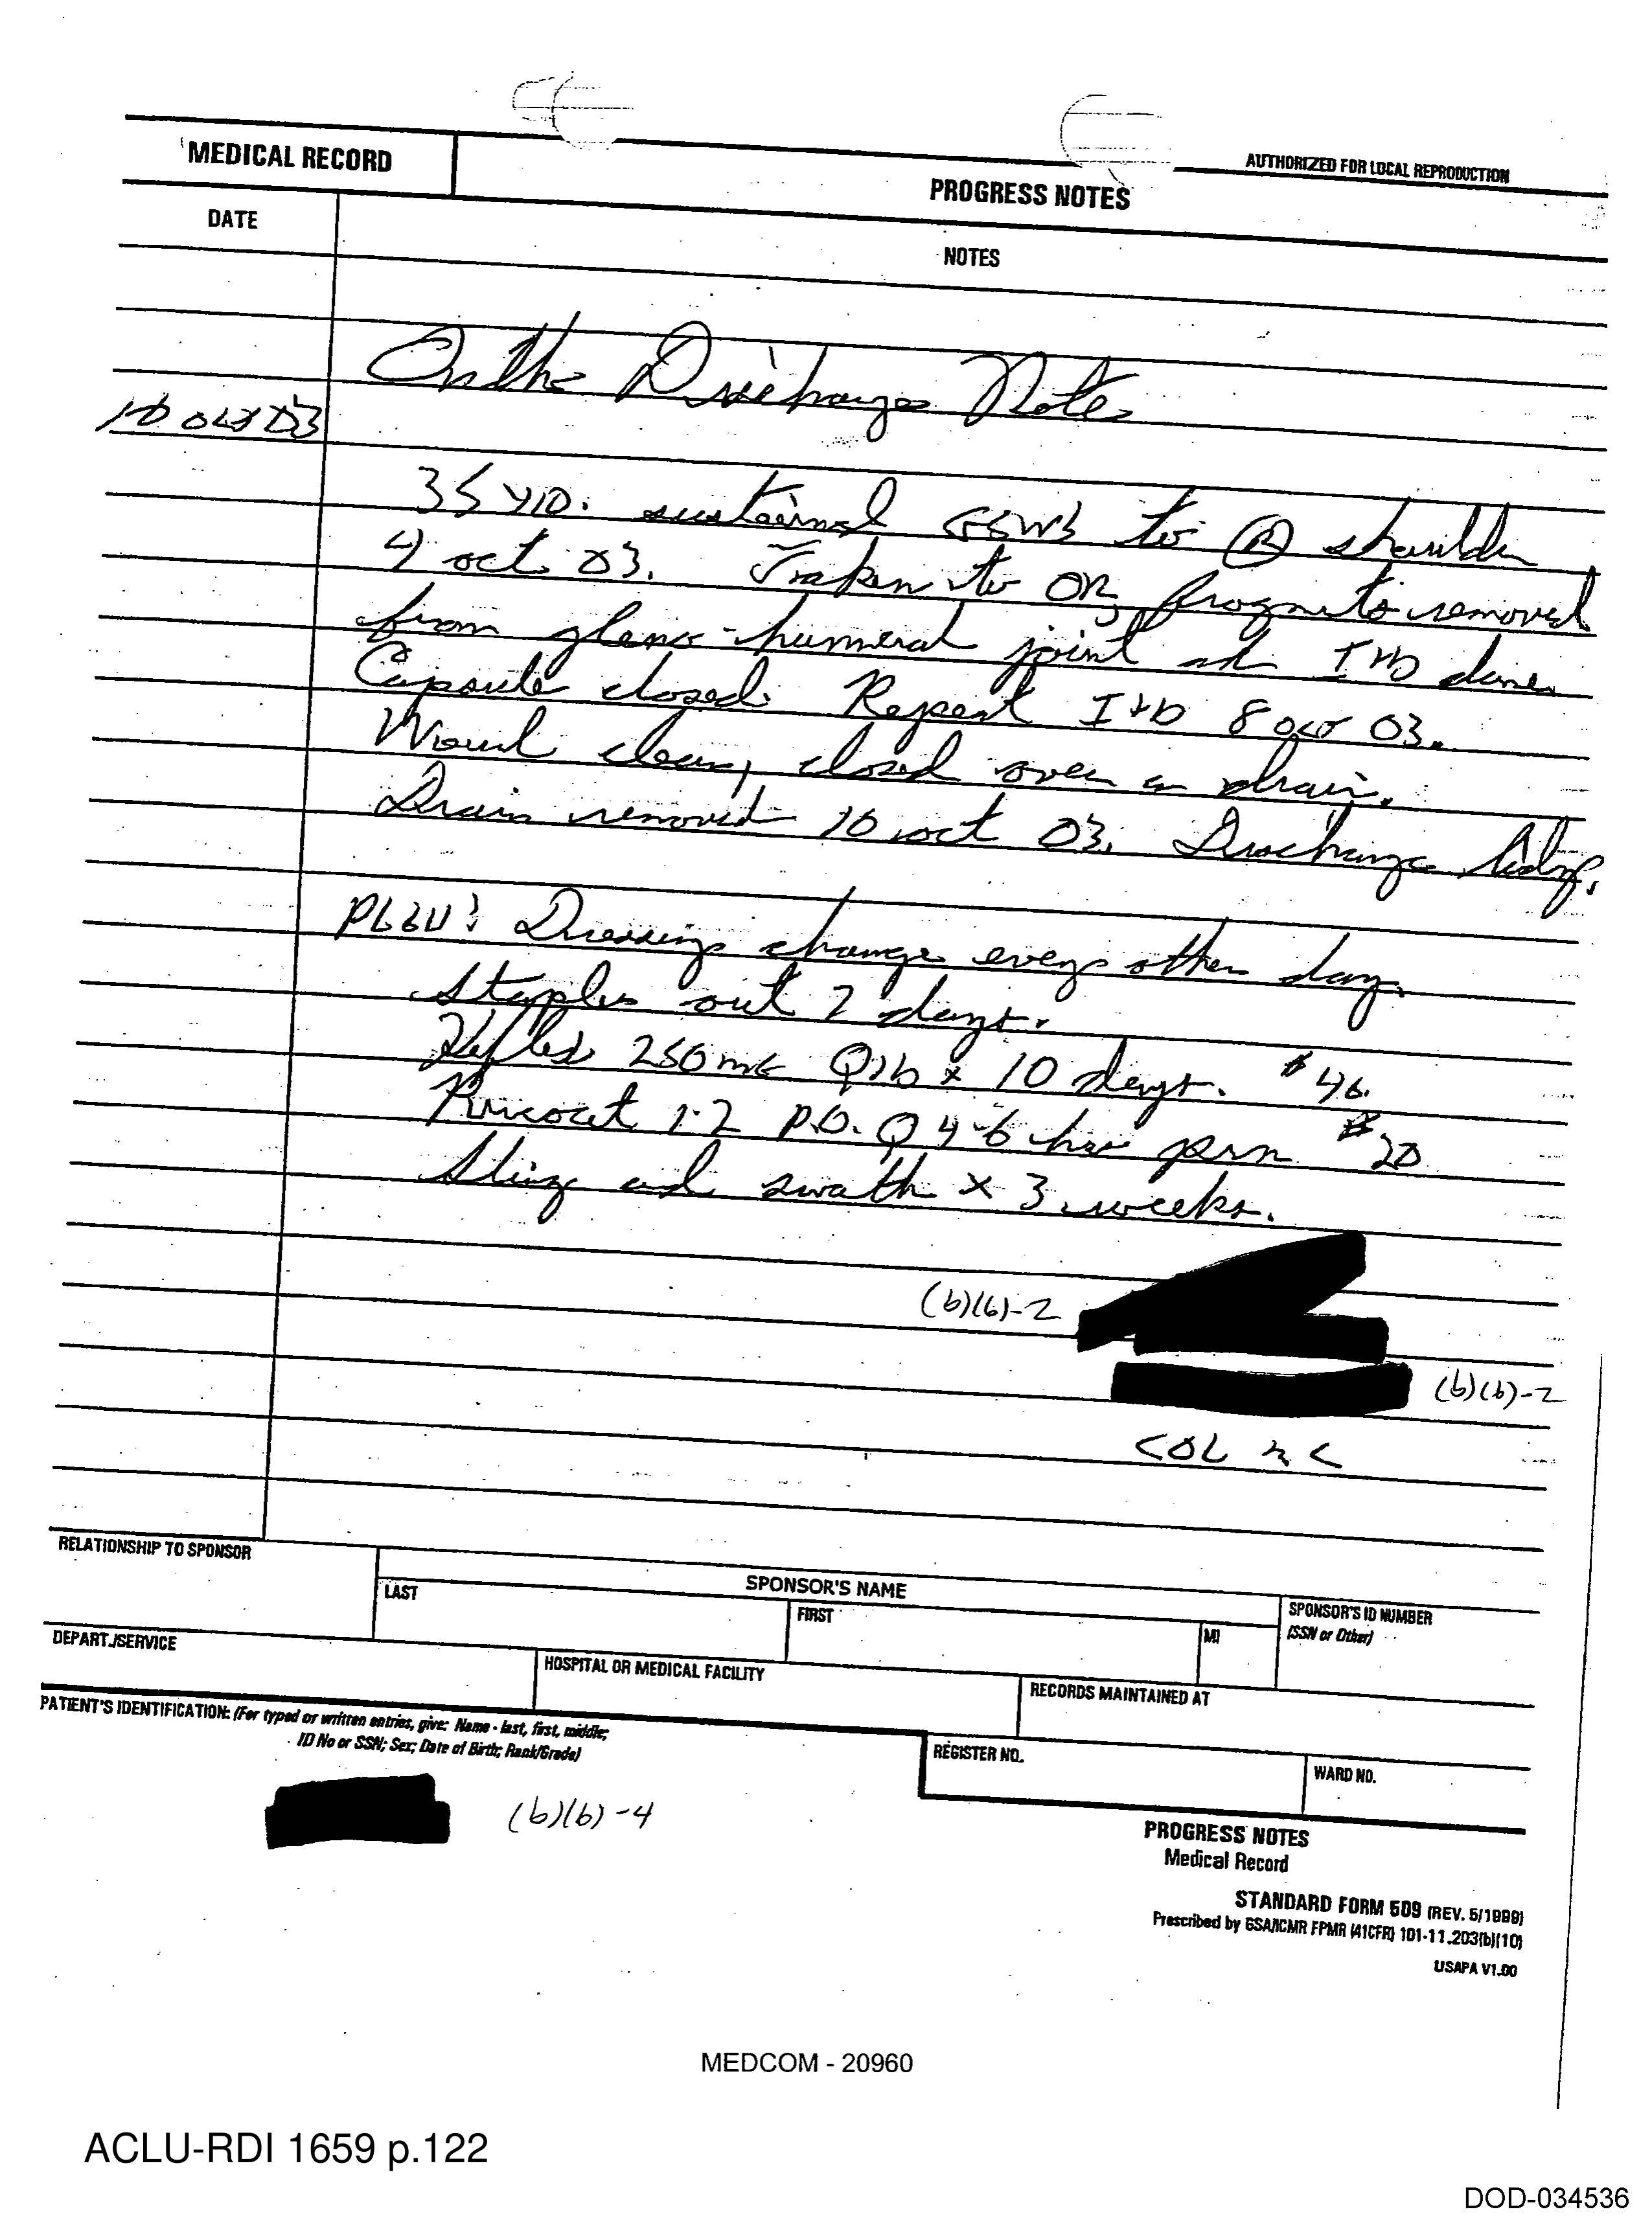 MEDICAL RECORD
PROGRESS NOTES
AUTHORIZED FOR LOCAL REPRODUCTION
DATE
NOTES
Ortho Discharge Note
10 oct 03
35 y/o. sustained GSW to (R) shoulder
4 oct 03. Taken to OR, fragments removed
from gleno-humeral joint and I+D done.
Capsule closed. Repeat I+D 8 oct 03.
Wound clean, closed over a drain.
Drain removed 10 oct 03. Discharge today.
PLAN: Dressing change every other day.
Staples out 7 days.
Keflex 250 mg QID x 10 days. #
Percocet 1-2 P.O. Q 4-6 hrs prn #20
Sling and swath x 3 weeks.
(b)(6)-2
(b)(6)-2
COL MC
RELATIONSHIP TO SPONSOR
SPONSOR'S NAME
LAST
FIRST
MI
SPONSOR'S ID NUMBER
(SSN or Other)
DEPART./SERVICE
HOSPITAL OR MEDICAL FACILITY
RECORDS MAINTAINED AT
PATIENT'S IDENTIFICATION: (For typed or written entries, give: Name - last, first, middle;
ID No or SSN; Sex; Date of Birth; Rank/Grade)
REGISTER NO.
WARD NO.
(b)(6)-4
PROGRESS NOTES
Medical Record
STANDARD FORM 509 (REV. 5/1999)
Prescribed by GSA/ICMR FPMR (41CFR) 101-11.203(b)(10)
USAPA V1.00
MEDCOM - 20960
ACLU-RDI 1659 p.122
DOD-034536